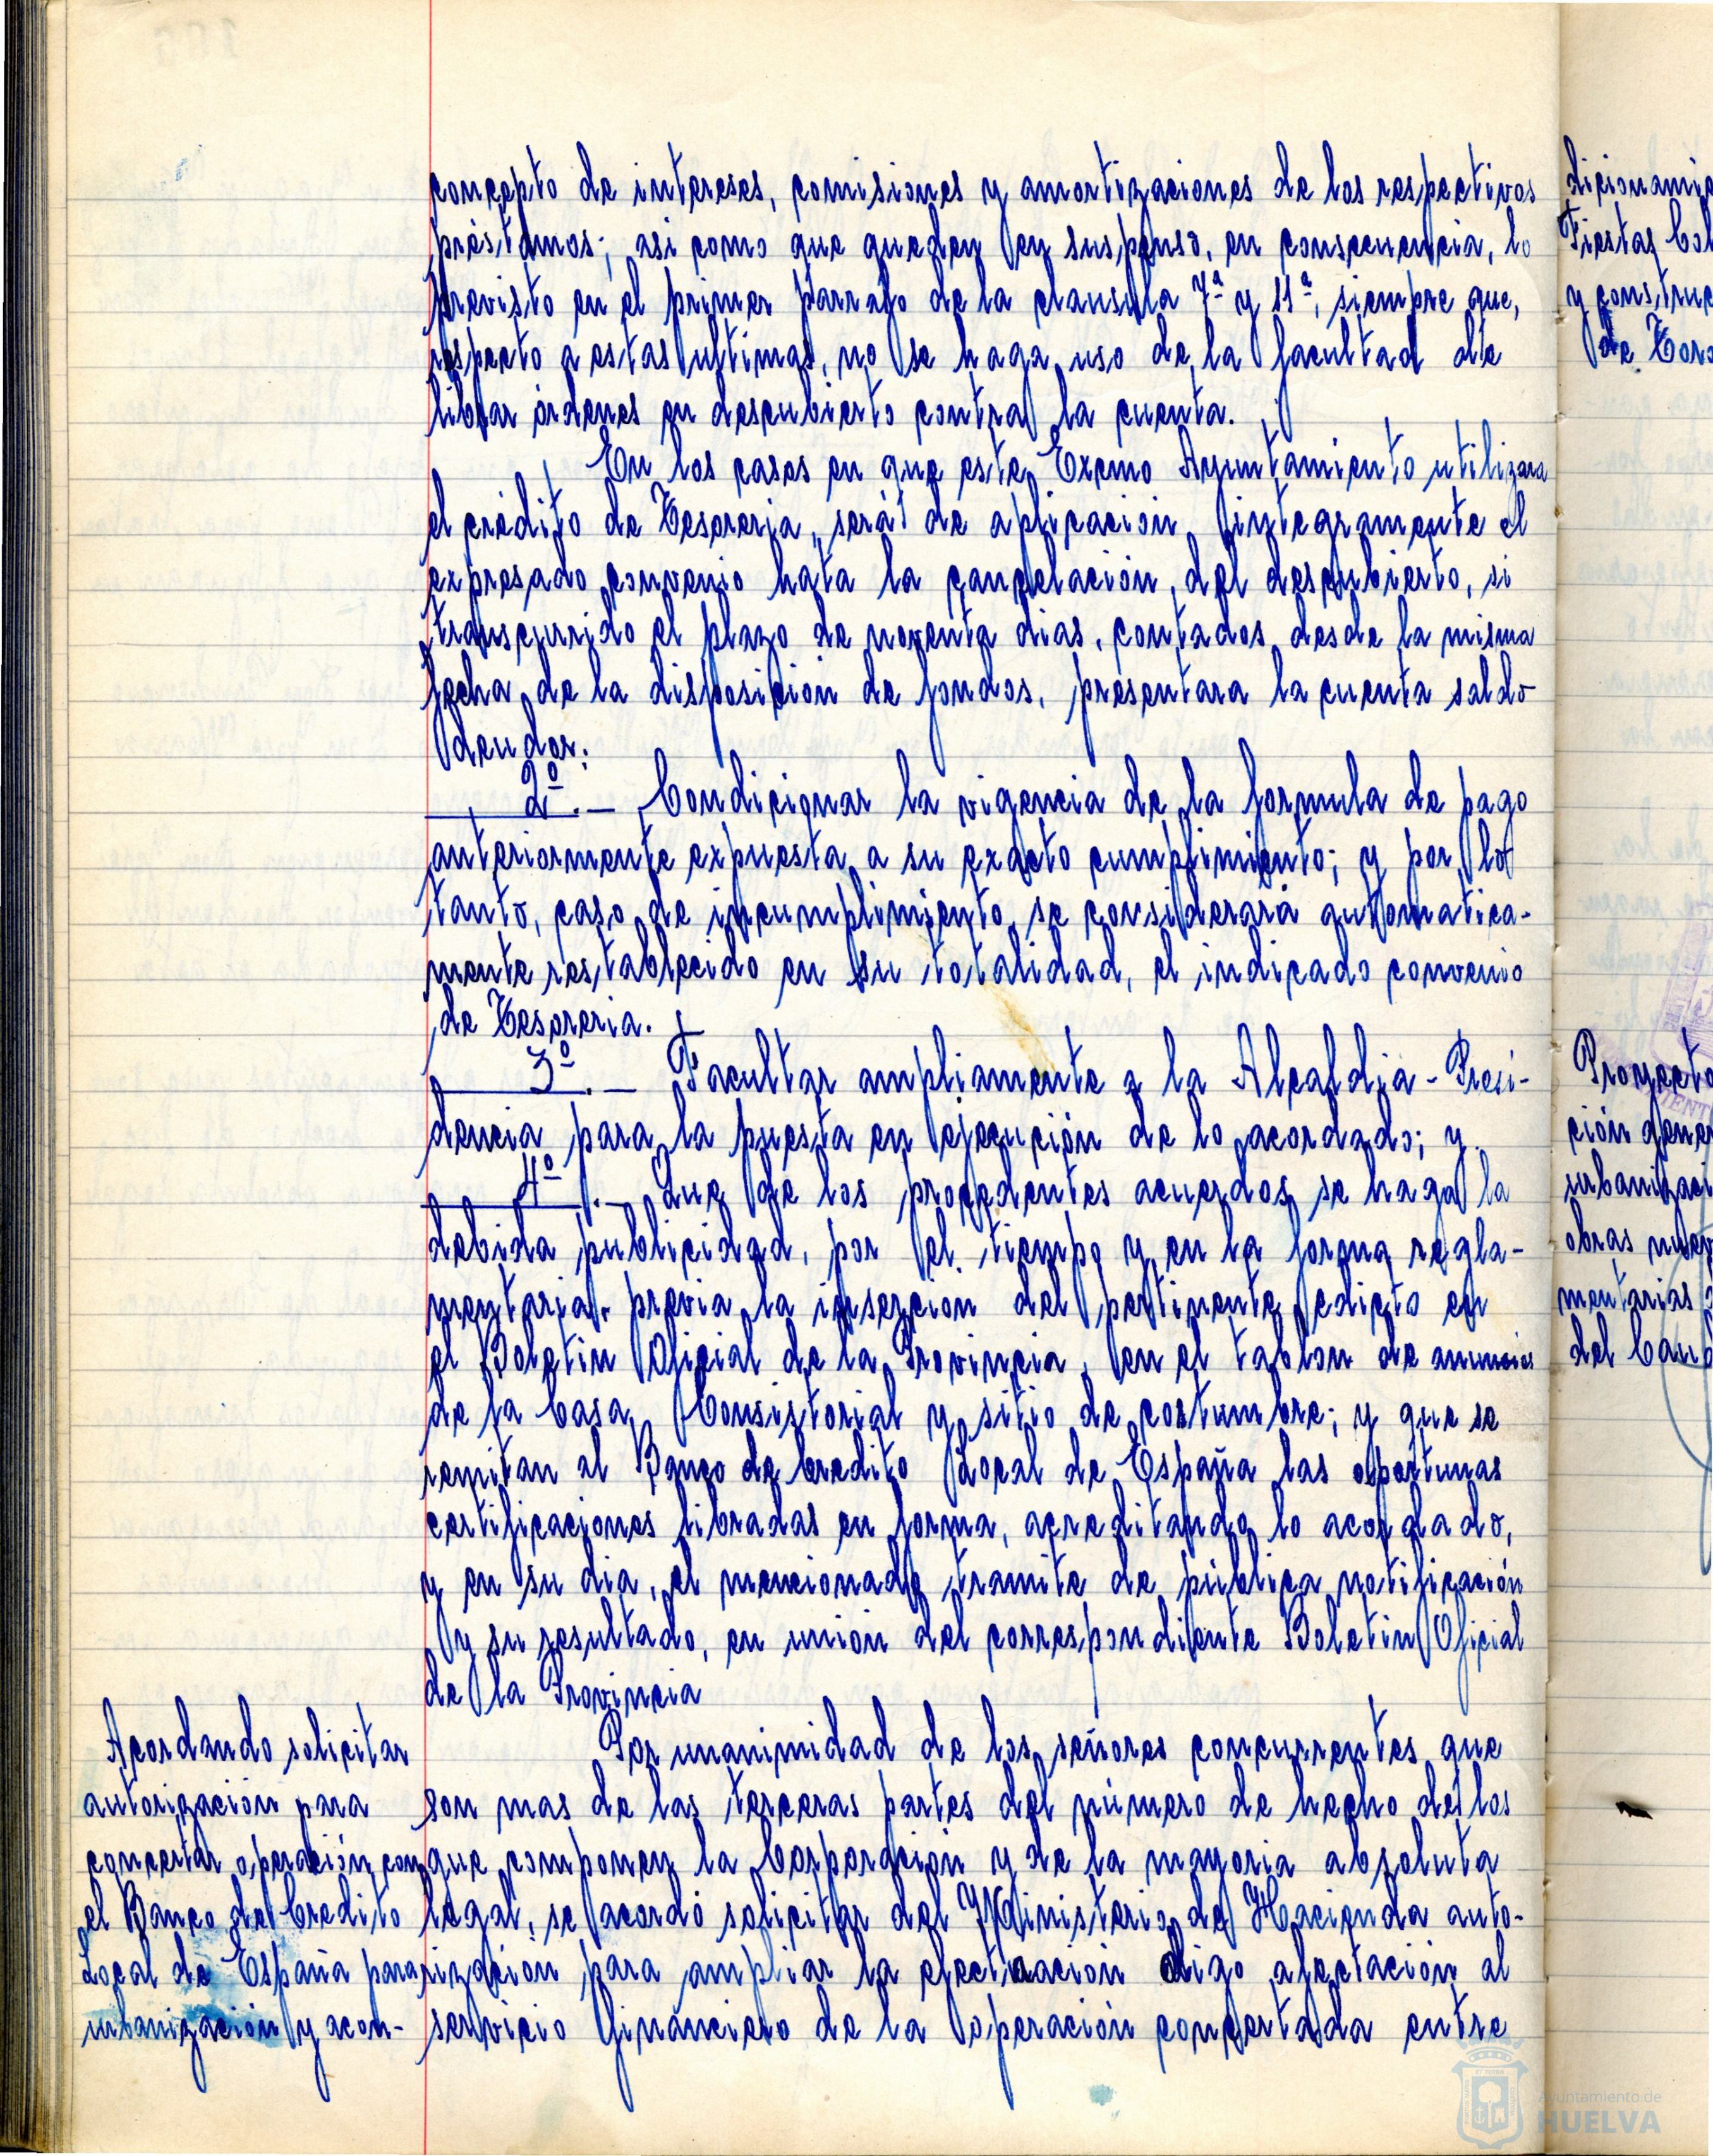 concepto de intereses, comisiones y amortizaciones de los respectivos
préstamos; asi como que queden en suspenso, en consecuencia, lo
previsto en el primer parrafo de la clausula 7ª y 11ª, siempre que,
respecto a estas ultimas, no se haga uso de la facultad de
librar órdenes en descubierto contra la cuenta.
En los casos en que este Excmo Ayuntamiento utilizara
el crédito de Tesoreria, será de aplicación integramente el
expresado convenio hata la cancelación del descubierto, si
transcurrido el plazo de noventa dias, contados desde la misma
fecha de la disposición de fondos, presentara la cuenta saldo
deudor;
2º.— Condicionar la vigencia de la formula de pago
anteriormente expuesta a su exacto cumplimiento; y por lo
tanto, caso de incumplimiento se considerará automatica-
mente restablecido en su totalidad, el indicado convenio
de Tesoreria.
3º.— Facultar ampliamente a la Alcaldia-Presi-
dencia para la puesta en ejecución de lo acordado; y
4º.— Que de los procedentes acuerdos se haga la
debida publicidad, por el tiempo y en la forma regla-
mentaria, previa la inserción del pertinente edicto en
el Boletin Oficial de la Provincia, en el tablon de anuncios
de la Casa Consistorial y sitio de costumbre; y que se
remitan al Banco de Credito Local de España las oportunas
certificaciones libradas en forma, acreditando lo acordado,
y en su dia, el mencionado tramite de pública notificación
y su resultado, en unión del correspondiente Boletin Oficial
de la Provincia
Acordando solicitar
autorización para
concertar operación con
el Banco de Credito
Local de España para
urbanización y acon-
Por unanimidad de los señores concurrentes que
son mas de las terceras partes del número de hecho de los
que componen la Corporación y de la mayoria absoluta
legal, se acordó solicitar del Ministerio de Hacienda auto-
rización para ampliar la efectuación digo afectación al
servicio financiero de la operación concertada entre
dicionamie
Fiestas Col
y construc
de Toro
Proyecto
ción gener
urbanizaci
obras
mentarias
del
Ayuntamiento de
HUELVA